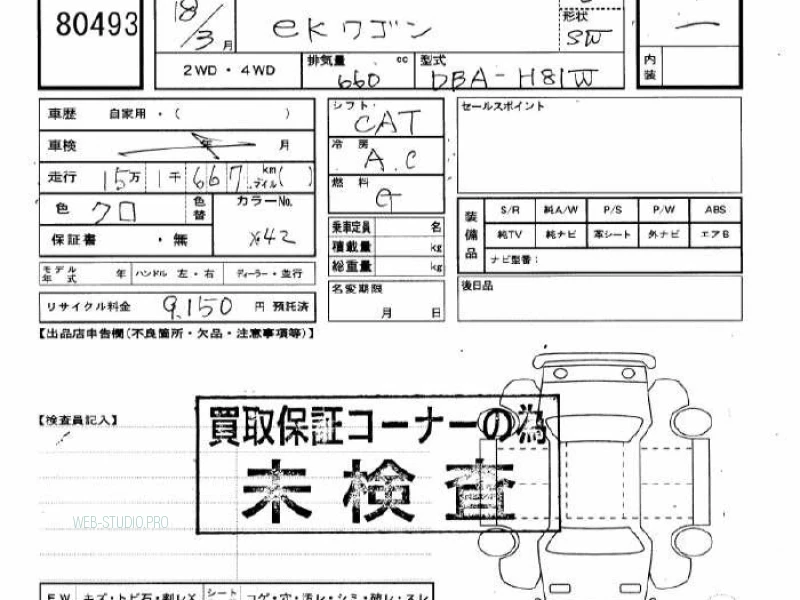 80493
18/3月
eKワゴン
形状
SW
2WD・4WD
排気量 cc
660
型式
DBA-H81W
内装
車歴 自家用・( )
車検 年 月
走行 15万1千667 km マイル( )
色 クロ
色替
カラーNo.
X42
保証書 ・無
モデル年式 年 ハンドル 左・右 ディーラー・並行
リサイクル料金 9,150 円 預託済
シフト
CAT
冷房
A.C
燃料
G
乗車定員 名
積載量 kg
総重量 kg
名変期限
月 日
セールスポイント
装備品
S/R 純A/W P/S P/W ABS
純TV 純ナビ 革シート 外ナビ エアB
ナビ型番:
後日品
【出品店申告欄(不良箇所・欠品・注意事項等)】
【検査員記入】
買取保証コーナーの為
未検査
WEB-STUDIO.PRO
E.W キズ・トビ石・割レX シート コゲ・穴・汚レ・シミ・破レ・スレ